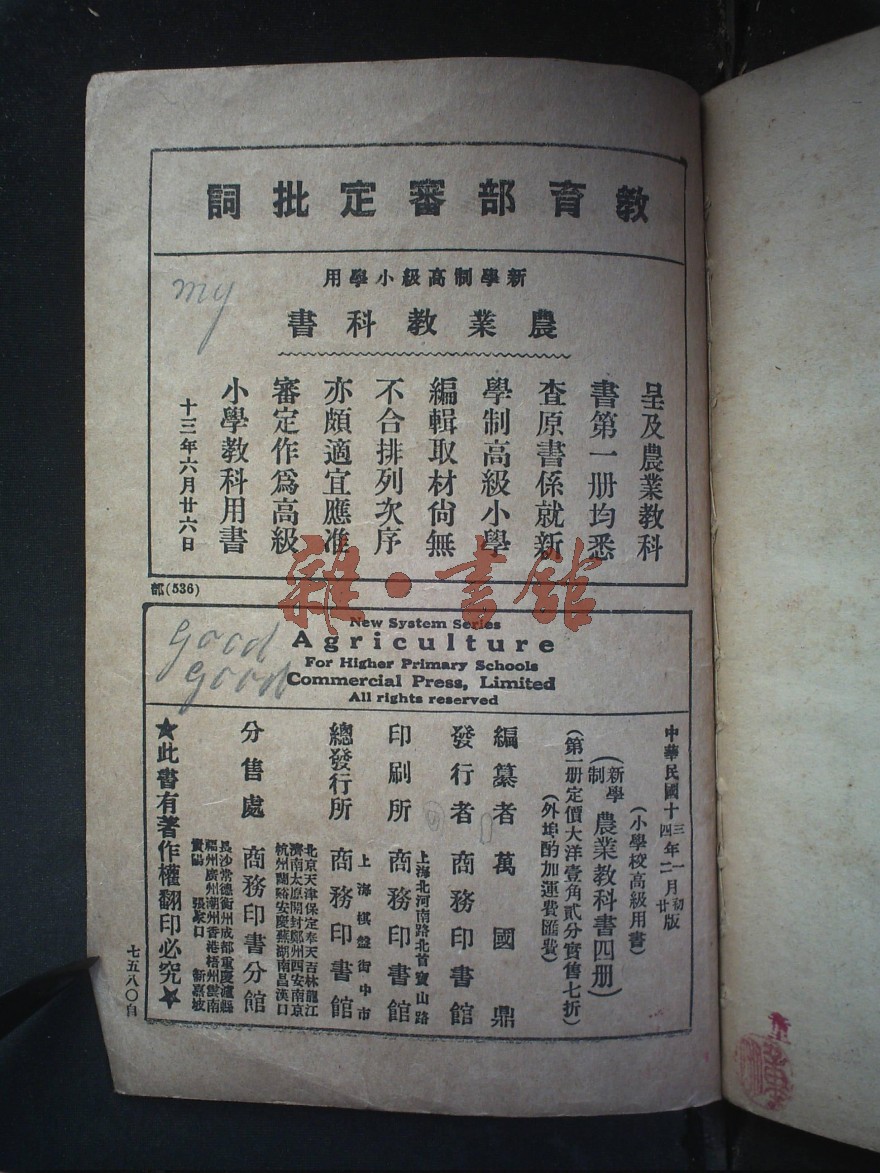 教育部審定批詞
新學制高級小學用
農業教科書
呈及農業教科
書第一册均悉
查原書係就新
學制高級小學
編輯取材尙無
不合排列次序
亦頗適宜應准
審定作爲高級
小學教科用書
十三年六月廿六日
my
部(536)
雜·書館
New System Series
Agriculture
For Higher Primary Schools
Commercial Press, Limited
All rights reserved
good
good
中華民國十三年一月初版
四 二 廿
(小學校高級用書)
(新學制農業教科書四册)
(第一册定價大洋壹角貳分實售七折)
(外埠酌加運費匯費)
編纂者 萬國鼎
發行者 商務印書館
上海北河南路北首寶山路
印刷所 商務印書館
上海棋盤街中市
總發行所 商務印書館
北京天津保定奉天吉林龍江
濟南太原開封鄭州西安南京
杭州蘭谿安慶蕪湖南昌漢口
分售處 商務印書分館
長沙常德衡州成都重慶瀘縣
福州廣州潮州香港梧州雲南
貴陽 張家口 新嘉坡
★此書有著作權翻印必究★
七五八〇自